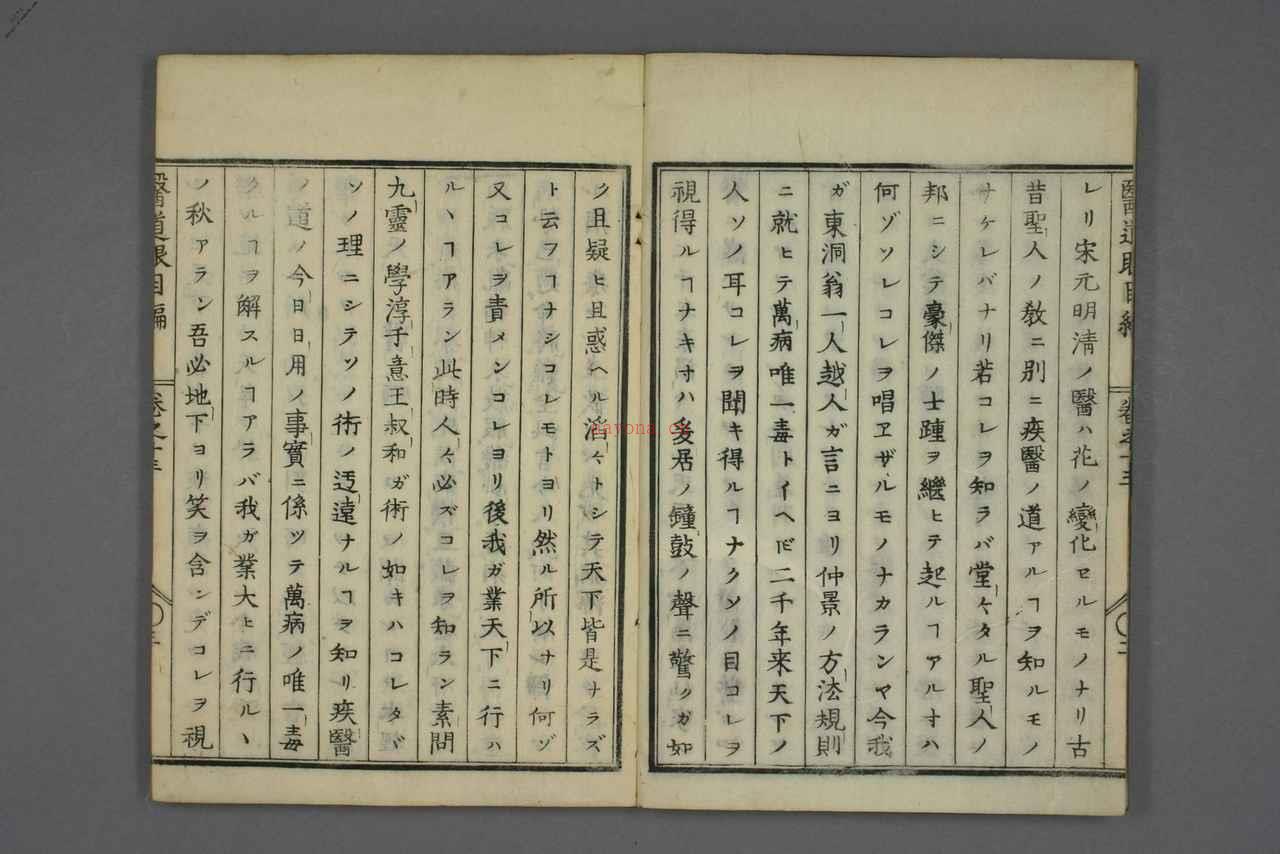 レリ宋元明清ノ醫ハ花ノ變化セルモノナリ古
昔聖人ノ敎ニ別ニ疾醫ノ道アルヿヲ知ルモノ
サケレバナリ若コレヲ知ラバ堂々タル聖人ノ
邦ニシテ豪傑ノ士踵ヲ繼ヒテ起ルヿアルオハ
何ゾソレコレヲ唱ヱザルモノナカランヤ今我
ガ東洞翁一人越人ガ言ニヨリ仲景ノ方法規則
ニ就ヒテ萬病唯一毒トイヘ𪜈二千年来天下ノ
人ソノ耳コレヲ聞キ得ルヿナクソノ目コレヲ
視得ルヿナキオハ爰居ノ鐘鼓ノ聲ニ驚クガ如
ク且疑ヒ且惑ヘル滔々トシラ天下皆是ナラズ
ト云フヿナシコレモトヨリ然ル所以ナリ何ゾ
又コレヲ責メンコレヨリ後我ガ業天下ニ行ハ
ルヽヿアラン此時人々必ズコレヲ知ラン素問
九靈ノ學淳于意王叔和ガ術ノ如キハコレタヾ
ソノ理ニシテソノ術ノ迂遠ナルヿヲ知リ疾醫
ノ道ノ今日日用ノ事實ニ係ツテ萬病ノ唯一毒
クルヿヲ解スルヿアラバ我ガ業大ヒニ行ルヽ
ノ秋アラン吾必地下ヨリ笑ヲ含ンデコレヲ視
醫道眼目編
卷之十三
nayona.cn